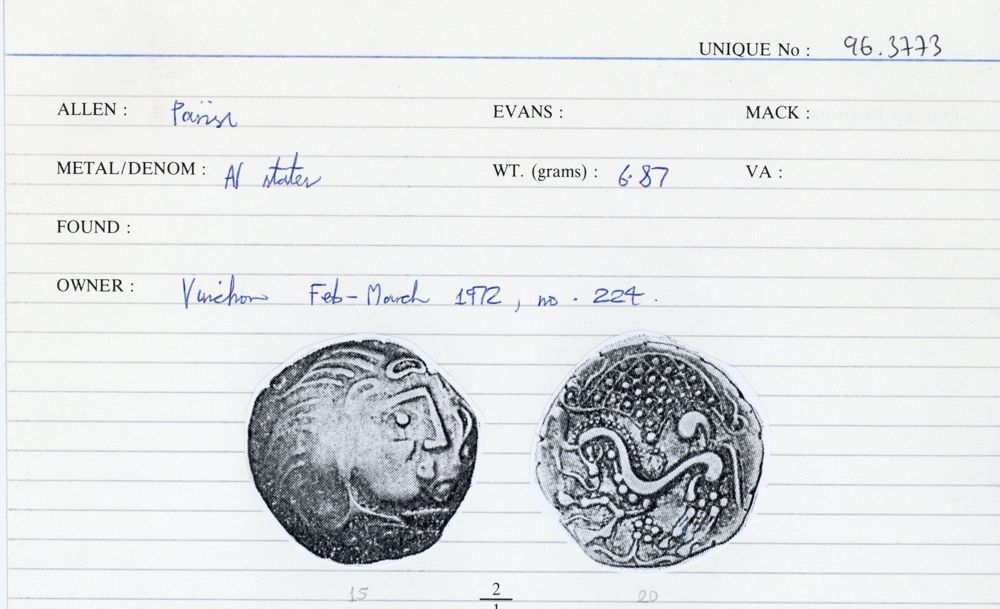 UNIQUE No : 96.3773
ALLEN : Parisi EVANS : MACK :
METAL/DENOM : AV stater WT. (grams) : 6.87 VA :
FOUND :
OWNER : Vinchon Feb-March 1972, no. 224.
15 2 20
1